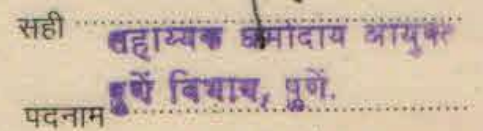 सही
सहाय्यक धर्मादाय आयुक्त
पुणें विभाग, पुणें.
पदनाम